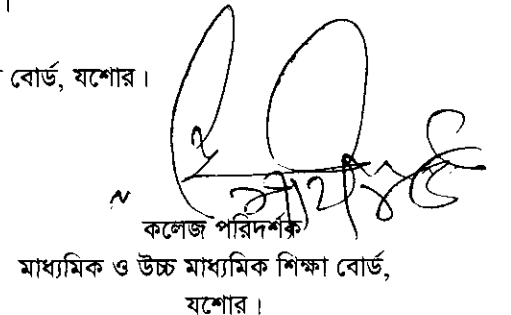 ।
বোর্ড, যশোর।
কলেজ পরিদর্শক
মাধ্যমিক ও উচ্চ মাধ্যমিক শিক্ষা বোর্ড,
যশোর।